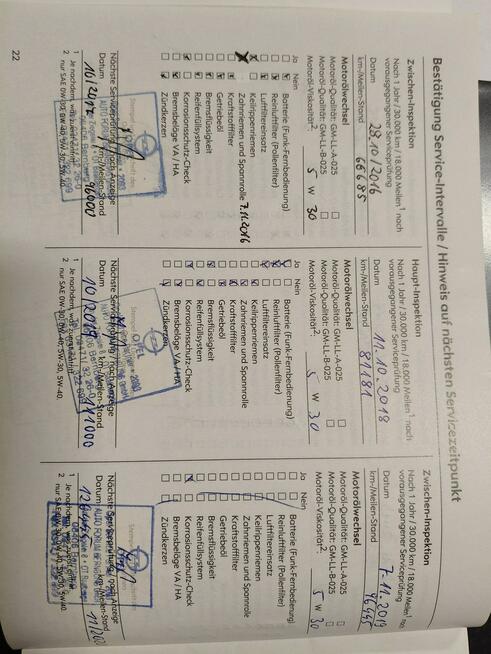 Bestätigung Service-Intervalle / Hinweis auf nächsten Servicezeitpunkt
Zwischen-Inspektion
Nach 1 Jahr / 30.000 km / 18.000 Meilen¹ nach
vorausgegangener Serviceprüfung
Datum 28.10/2016
km-/Meilen-Stand 66685
Motorölwechsel
Motoröl-Qualität: GM-LL-A-025
Motoröl-Qualität: GM-LL-B-025
Motoröl-Viskosität²: 5 W 30
Ja Nein
Batterie (Funk-Fernbedienung)
Reinluftfilter (Pollenfilter)
Luftfiltereinsatz
Keilrippenriemen
Zahnriemen und Spannrolle 7.11.2016
Kraftstofffilter
Getriebeöl
Bremsflüssigkeit
Reifenfüllsystem
Korrosionsschutz-Check
Bremsbeläge VA / HA
Zündkerzen
Nächste Serviceprüfung nach Anzeige
Datum km-/Meilen-Stand
10/2017 96000
1 Je nachdem, was zuerst eintritt
2 nur SAE 0W-30, 0W-40, 5W-30, 5W-40.
22
Haupt-Inspektion
Nach 1 Jahr / 30.000 km / 18.000 Meilen¹ nach
vorausgegangener Serviceprüfung
Datum 11.10.2018
km-/Meilen-Stand 81281
Motorölwechsel
Motoröl-Qualität: GM-LL-A-025
Motoröl-Qualität: GM-LL-B-025
Motoröl-Viskosität²: 5 W 30
Ja Nein
Batterie (Funk-Fernbedienung)
Reinluftfilter (Pollenfilter)
Luftfiltereinsatz
Keilrippenriemen
Zahnriemen und Spannrolle
Kraftstofffilter
Getriebeöl
Bremsflüssigkeit
Reifenfüllsystem
Korrosionsschutz-Check
Bremsbeläge VA / HA
Zündkerzen
OPEL
Nächste Serviceprüfung nach Anzeige
Datum km-/Meilen-Stand
111000
1 Je nachdem, was zuerst eintritt
2 nur SAE 0W-30, 0W-40, 5W-30, 5W-40.
Zwischen-Inspektion
Nach 1 Jahr / 30.000 km / 18.000 Meilen¹ nach
vorausgegangener Serviceprüfung
Datum 7.11.2019
km-/Meilen-Stand 96995
Motorölwechsel
Motoröl-Qualität: GM-LL-A-025
Motoröl-Qualität: GM-LL-B-025
Motoröl-Viskosität²: 5 W 30
Ja Nein
Batterie (Funk-Fernbedienung)
Reinluftfilter (Pollenfilter)
Luftfiltereinsatz
Keilrippenriemen
Zahnriemen und Spannrolle
Kraftstofffilter
Getriebeöl
Bremsflüssigkeit
Reifenfüllsystem
Korrosionsschutz-Check
Bremsbeläge VA / HA
Zündkerzen
Nächste Serviceprüfung nach Anzeige
Datum km-/Meilen-Stand
1 Je nachdem, was zuerst eintritt
2 nur SAE 0W-30, 0W-40, 5W-30, 5W-40.